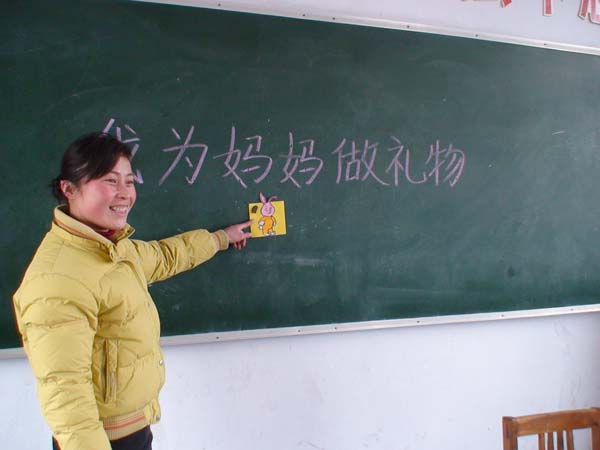 我为妈妈做礼物